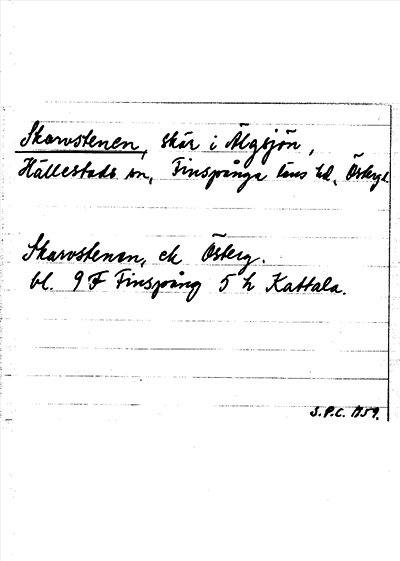 Skarvstenen, skär i Älgsjön,
Hällestads sn, Finspånga läns hd, Östergl.
Skarvstenen, ek Österg.
bl. 9 F Finspång 5 h Kattala.
S.P.C. 1959.